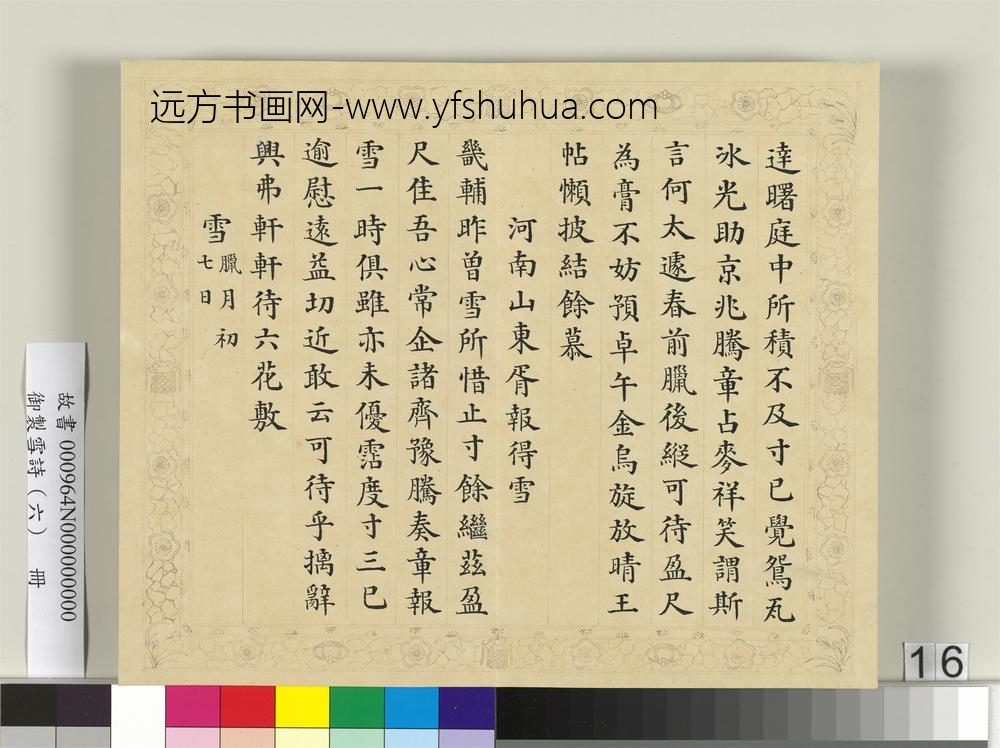 远方书画网-www.yfshuhua.com
達曙庭中所積不及寸已覺鴛瓦
冰光助京兆騰章占麥祥笑謂斯
言何太遽春前臘後縱可待盈尺
為膏不妨預卓午金烏旋放晴王
帖懶披結餘慕
河南山東胥報得雪
畿輔昨曾雪所惜止寸餘繼茲盈
尺佳吾心常企諸齊豫騰奏章報
雪一時俱雖亦未優霑度寸三已
逾慰遠益切近敢云可待乎摛辭
興弗軒軒待六花敷
雪臘月初
七日
故書 000964N000000000
御製雪詩(六) 冊
16